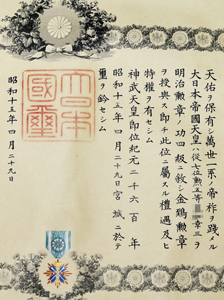 天佑ヲ保有シ萬世一系ノ帝祚ヲ踐メル
大日本帝國天皇ハ從七位勲五等 章ヲ
明治勲章ノ功四級ニ敍シ金鵄勲章
ヲ授與ス即チ此位ニ屬スル禮遇及ヒ
特權ヲ有セシム
神武天皇即位紀元二千六百年
昭和十五年四月二十九日宮城ニ於テ
璽ヲ鈐セシム
大日本國璽
昭和十五年四月二十九日